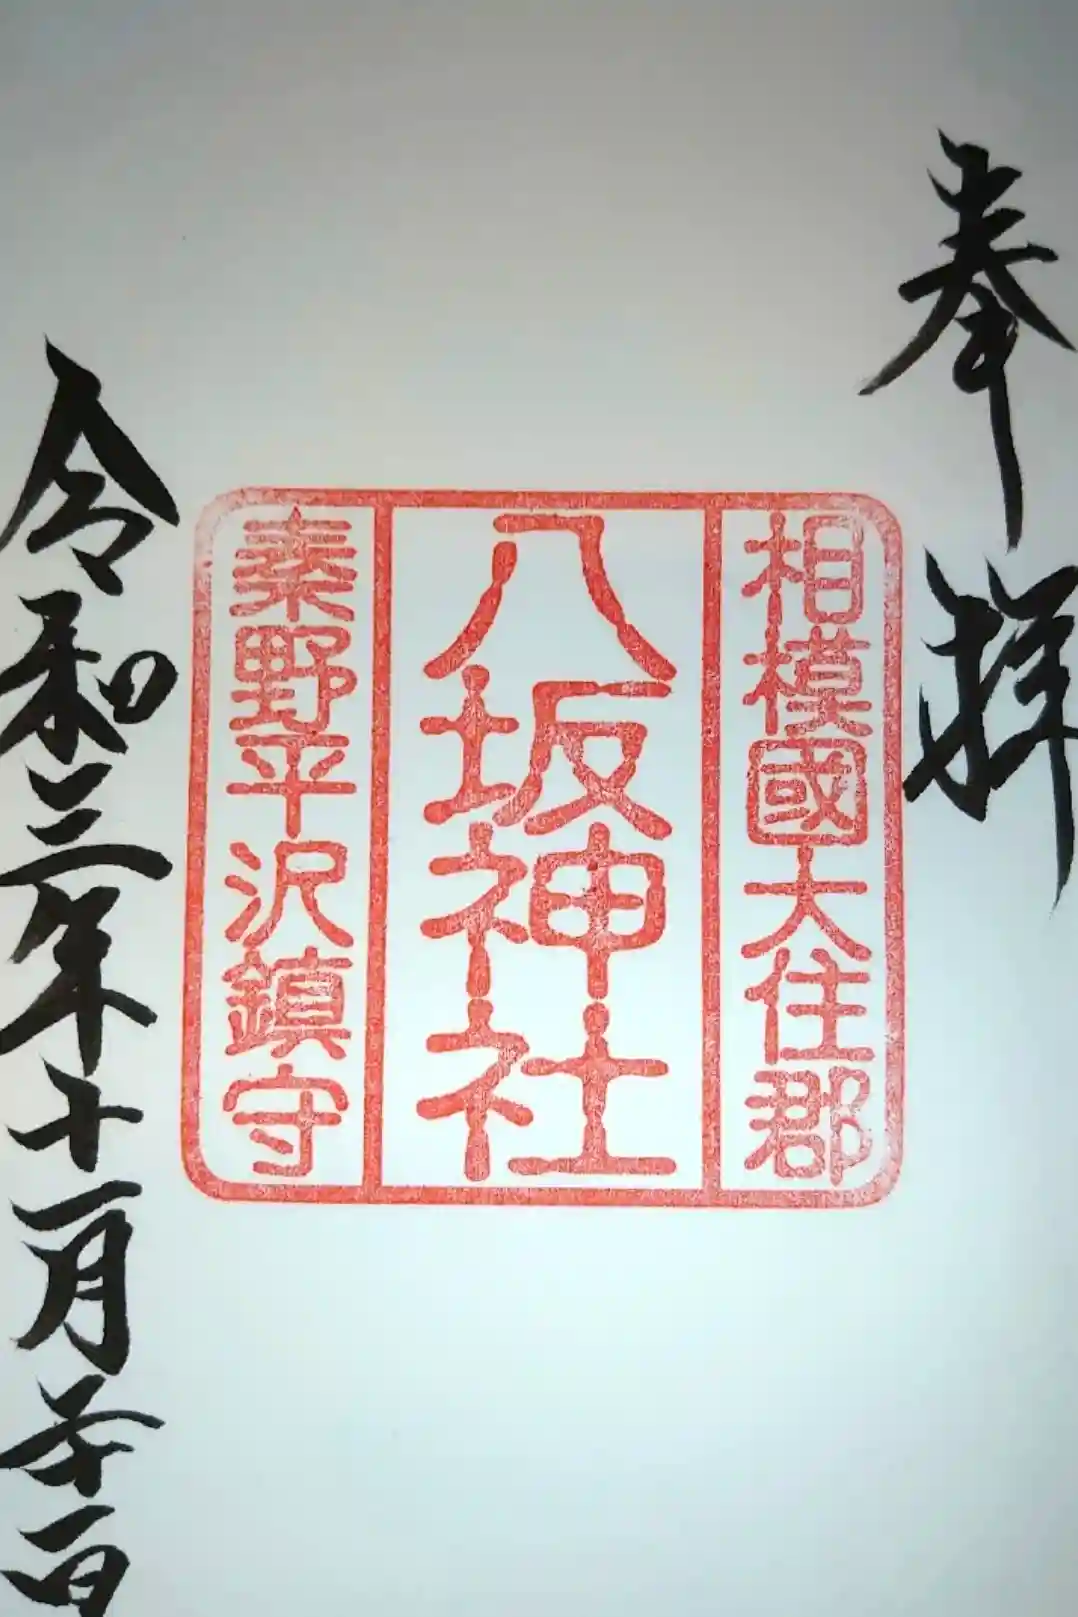 奉拝
相模國大住郡
八坂神社
秦野平沢鎮守
令和三年十一月二十一日